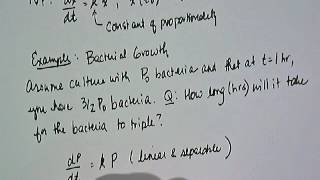 IVP: dx/dt = kx, x(t0)
constant of proportionality
Example: Bacterial Growth
Assume culture with P0 bacteria and that at t=1 hr,
you have 3/2 P0 bacteria. Q: How long (hrs) will it take
for the bacteria to triple?
dP/dt = kP (linear & separable)